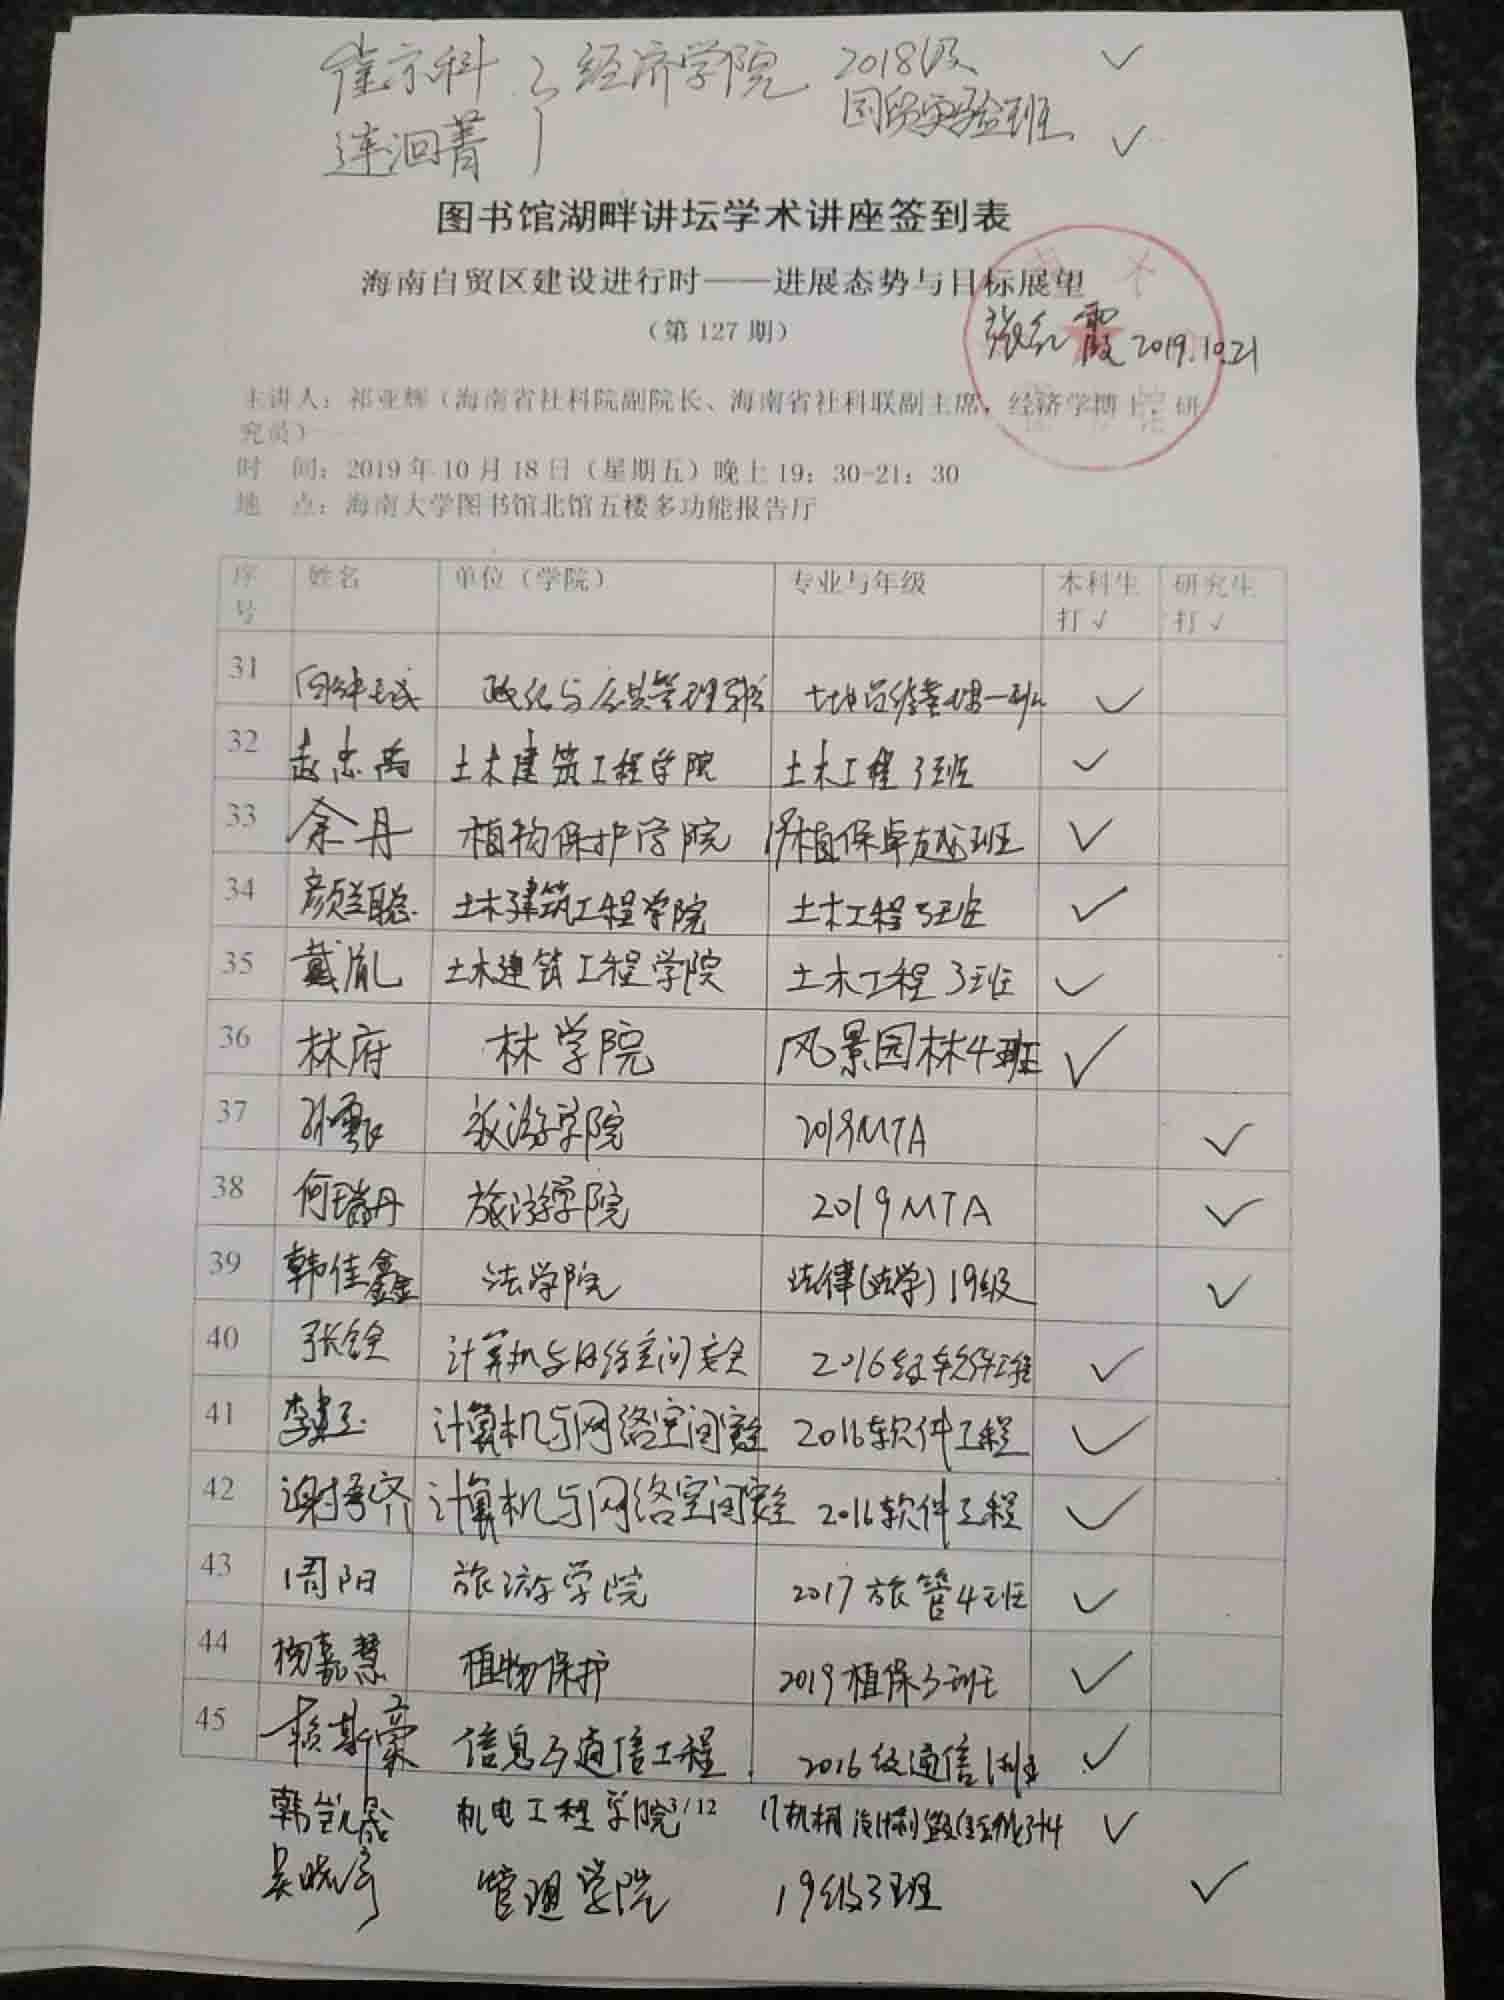 崔京科 经济学院 2018级 ✓
国贸实验班
连洄菁 ✓
图书馆湖畔讲坛学术讲座签到表
海南自贸区建设进行时——进展态势与目标展望
（第127期）
张红霞 2019.10.21
主讲人：祁亚辉（海南省社科院副院长、海南省社科联副主席，经济学博士，研
究员）
时 间：2019年10月18日（星期五）晚上19：30-21：30
地 点：海南大学图书馆北馆五楼多功能报告厅
序号 姓名 单位（学院） 专业与年级 本科生打√ 研究生打√
31 政治与公共管理学院 ✓
32 赵忠禹 土木建筑工程学院 土木工程3班 ✓
33 余丹 植物保护学院 19植保卓越班 ✓
34 颜聪 土木建筑工程学院 土木工程3班 ✓
35 戴胤 土木建筑工程学院 土木工程3班 ✓
36 林府 林学院 风景园林4班 ✓
37 旅游学院 2019MTA ✓
38 何瑞丹 旅游学院 2019MTA ✓
39 韩佳鑫 法学院 法律(法学)19级 ✓
40 张 计算机与网络空间安全 2016级软件工程 ✓
41 李 计算机与网络空间安全 2016软件工程 ✓
42 谢 计算机与网络空间安全 2016软件工程 ✓
43 周阳 旅游学院 2017旅管4班 ✓
44 杨嘉慧 植物保护 2019植保3班 ✓
45 赖斯豪 信息与通信工程 2016级通信1班 ✓
韩凯晟 机电工程学院3/12 17机械设计制造 ✓
吴晓 管理学院 19级3班 ✓